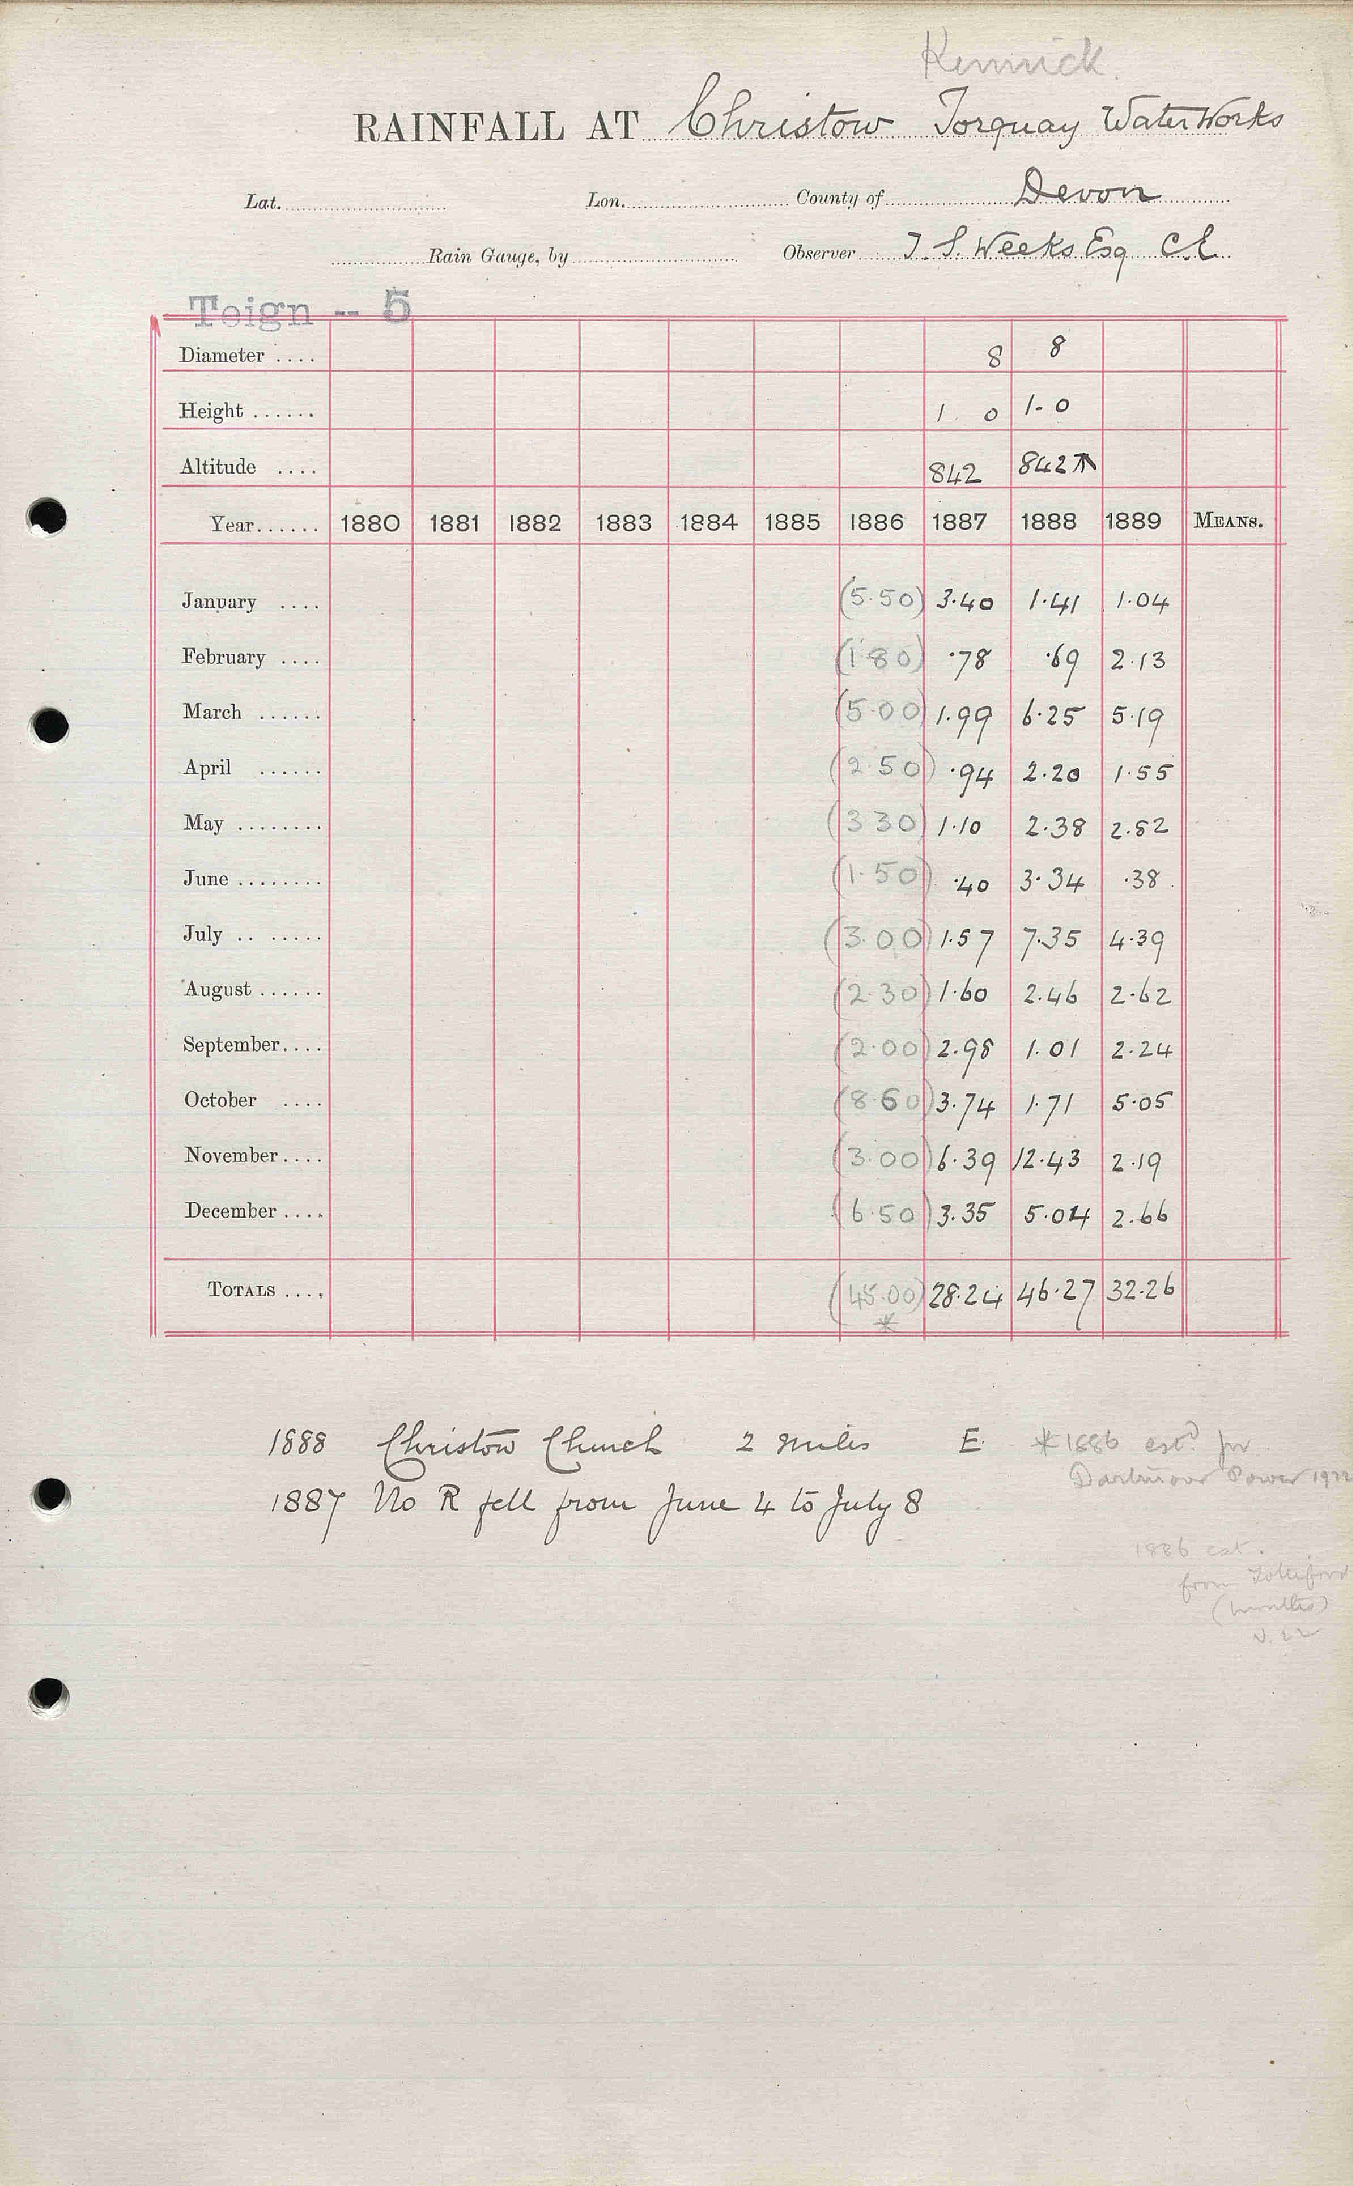 Kennick.
RAINFALL AT Christow Torquay WaterWorks
Lat. Lon. County of Devon
Rain Gauge, by Observer T. S. Weeks Esq C.E.
Teign -- 5
Diameter .... 8 8
Height ...... 1. 0 1- 0
Altitude .... 842 842
Year...... 1880 1881 1882 1883 1884 1885 1886 1887 1888 1889 MEANS.
January .... (5.50) 3.40 1.41 1.04
February .... (1.80) .78 .69 2.13
March ...... (5.00) 1.99 6.25 5.19
April ...... (2.50) .94 2.20 1.55
May ........ (3 30) 1.10 2.38 2.82
June ........ (1.50) .40 3.34 .38
July .. ..... (3.00) 1.57 7.35 4.39
August ...... (2.30) 1.60 2.46 2.62
September.... (2.00) 2.98 1.01 2.24
October .... (8.60) 3.74 1.71 5.05
November.... (3.00) 6.39 12.43 2.19
December .... (6.50) 3.35 5.04 2.66
TOTALS .... (45.00) 28.24 46.27 32.26
*
1888 Christow Church 2 miles E. * 1886 estd for
Dartmoor Power 1922
1887 No R fell from June 4 to July 8
1886 est.
from
(months)